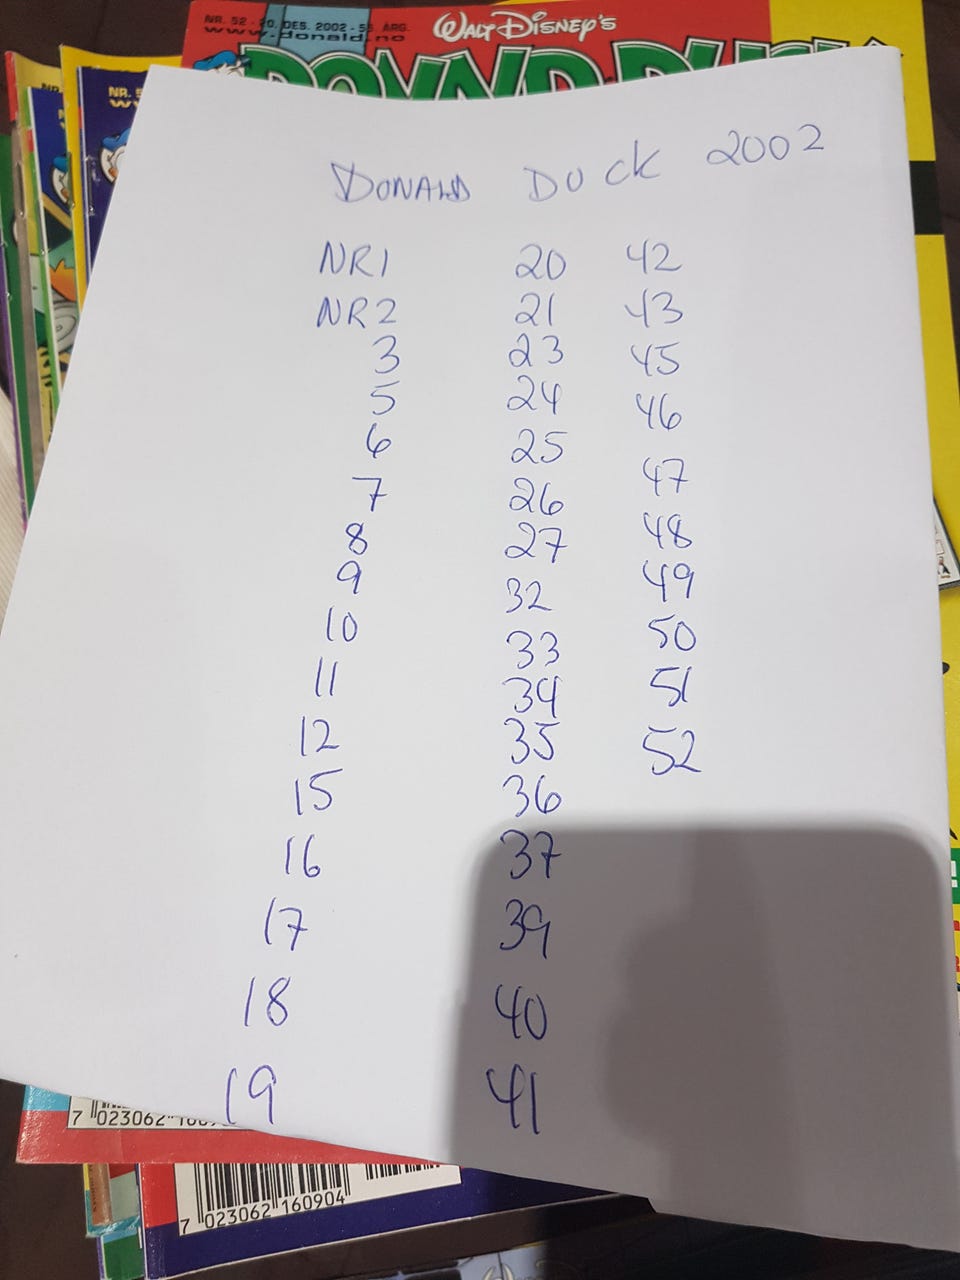 NR. 52 - 20. DES. 2002 - 55. ARG.
www.donald.no
WALT DISNEY'S
DONALD DUCK
NR.
DONALD DUCK 2002
NR1
NR2
3
5
6
7
8
9
10
11
12
15
16
17
18
19
20
21
23
24
25
26
27
32
33
34
35
36
37
39
40
41
42
43
45
46
47
48
49
50
51
52
7 023062 160904